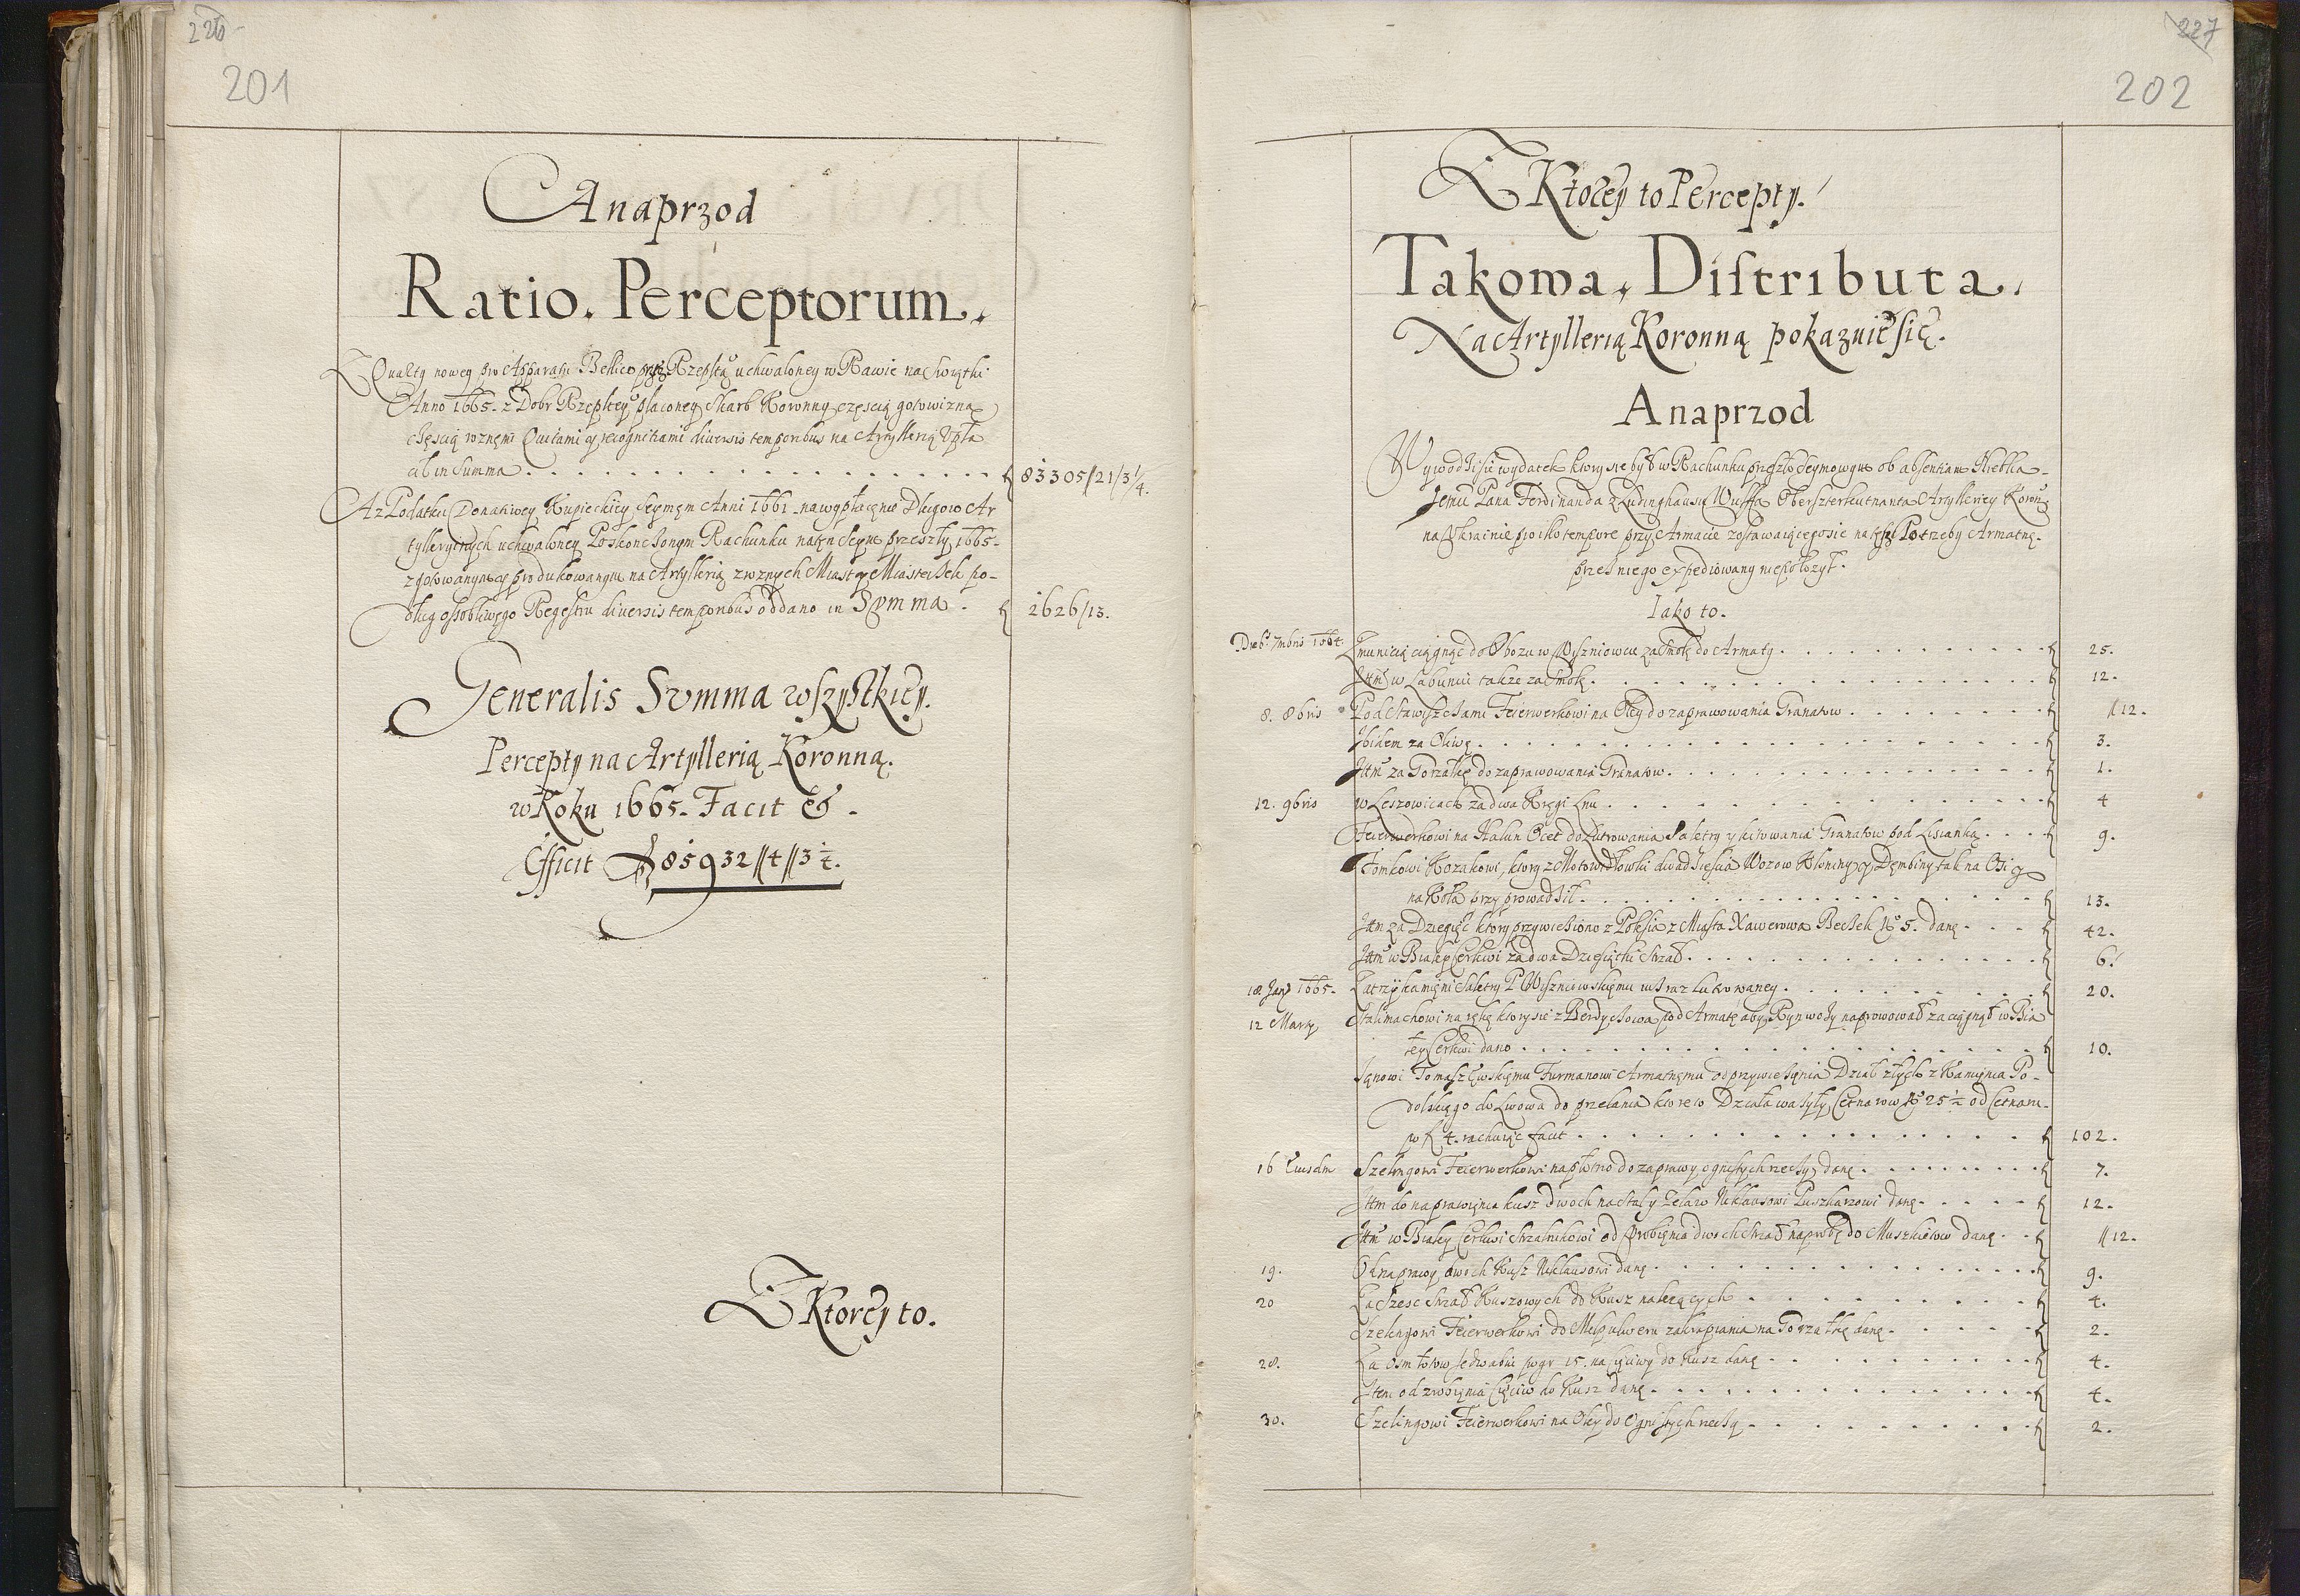 226
201
Anaprzod
Ratio. Perceptorum.
Z Quarty nowey pro Apparatu Bellico przez Rzeplttą uchwaloney w Rawie na Swiątki
Anno 1665. z Dobr Rzepltey płaconey Skarb Koronny częscią gotowizną
częscią roznemi Quitami y recognitiami diuersis temporibus na Artyllerią Vpła
cił in Summa 83305//21/3 1/4.
A z Podatku Donatiwey Kupieckiey Seymem Anni 1661. na wypłacenie Długow Ar
tylleryinych uchwaloney Po skonczonym Rachunku na ten Seym przeszły 1665.
zgotowanym y produkowanym na Artyllerią z roznych Miast y Miasteczek po-
dług osobliwego Regestru diuersis temporibus oddano in Summa 2626/13.
Generalis Summa wszystkiey.
Percepty na Artyllerią Koronną.
w Roku 1665. Facit &.
Efficit 85932//4//3 1/4.
Z Ktorey to.
227
202
Z Ktorey to Percepty.
Takowa. Distributa.
Na Artyllerią Koronną pokazuie się.
Anaprzod
Wywodzi się wydatek ktory się był w Rachunku przeszło Seymowym ob absentiam Niebła-
Jemu Pana Ferdinanda z Ludinghausu Wulffa Oberszterleutnanta Artylleriey Koron:
na Vkrainie pro illo tempore przy Armacie zostawaiącego się na też Potrzeby Armatne.
przez niego expediowany nie położył.
Iako to.
Dieb: 7mbris 1664. Z municią ciągnąc do Obozu w Wiszniowcu za Smołę do Armaty 25.
Jtm w Łabuniu także za Smołę 12.
8. 8bris Pod Stawiszczami Feierwerkowi na Oley do zaprawowania Granatow //12.
Jbidem za Oliwę 3.
Jtm za Gorzałkę do zaprawowania Granatow 1.
12. 9bris w Leszowicach za dwa Kręgi Lnu 4
Feierwerkowi na Hałun Ocet do Lutrowania Saletry y kitowania Granatow pod Lisianką 9.
Tomkowi Kozakowi, ktory z Motowidłowki dwadziescia Wozow Kloniny y Dembiny tak na Osi y
na Koła przyprowadził 13.
Jtm za Dziegięć ktory przywieziono z Polesia z Miasta Xawerowa Beczek No 5. dano 42.
Jtm w Białey Cerkwi za dwa Dziesiątki Strzał 6.
18 Jan: 1665. Za trzy kamieni Saletry P Wiszniowskiemu in z lutrowaney 20.
12 Marty Stalmachowi na rękę ktory się z Berdyczowa pod Armatę aby Rynwozy naprowował zaciągnął w Bia
łey Cerkwi dano 10.
Janowi Tomaszewskiemu Furmanowi Armatnemu od przywiezienia Dział złych z Kamienca Po-
dolskiego do Lwowa do przelania ktore to Działa ważyły Cetnarow No 25 1/2 od Cetnaru
po f 4. rachuiąc facit 102.
16 Eiusdm Szelingowi Feierwerkowi na płotno do zaprawy ognistych rzeczy dano 7.
Jtm do naprawienia kusz dwoch na Stal y Zelazo Niklausowi Puszkarzowi dano 12.
Jtm w Białey Cerkwi Strzalnikowi od zrobienia dwoch Strzał na probę do Muszkietow dano //12.
19. Od naprawy dwoch Kusz Niklausowi dano 9.
20 Za Szesc Strzał Kuszowych do Kusz należących 4.
Szelingowi Feierwerkowi do Melpulweru zakrapiania na Gorzałkę dano 2.
28. Za Osm łotow Jedwabiu po gr 15. na cięciwy do Kusz dano 4.
Jtem od zrobienia Cięciw do Kusz dano 4.
30. Szelingowi Feierwerkowi na Oley do Ognistych rzeczy 2.